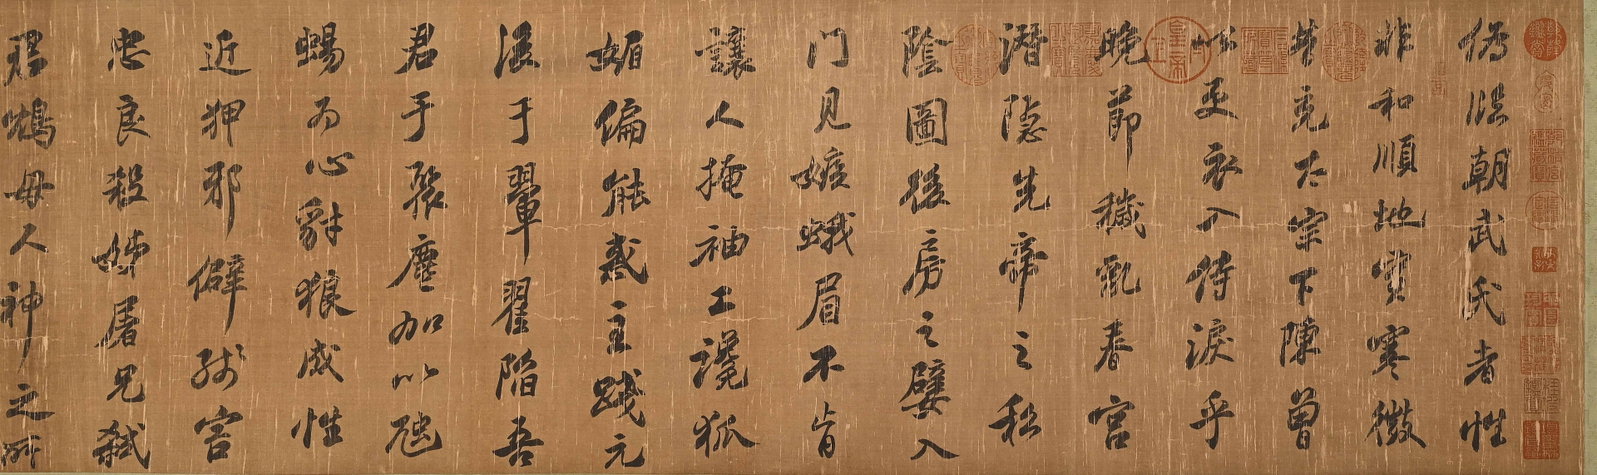 偽臨朝武氏者性
非和順地實寒微
昔充太宗下陳曾
以更衣入侍淚乎
晚節穢亂春宮
潛隱先帝之私
陰圖後房之嬖入
門見嫉蛾眉不肯
讓人掩袖工讒狐
媚偏能惑主踐元
后于翬翟陷吾
君于聚麀加以虺
蜴為心豺狼成性
近狎邪僻殘害
忠良殺姊屠兄弒
君鴆母人神之所